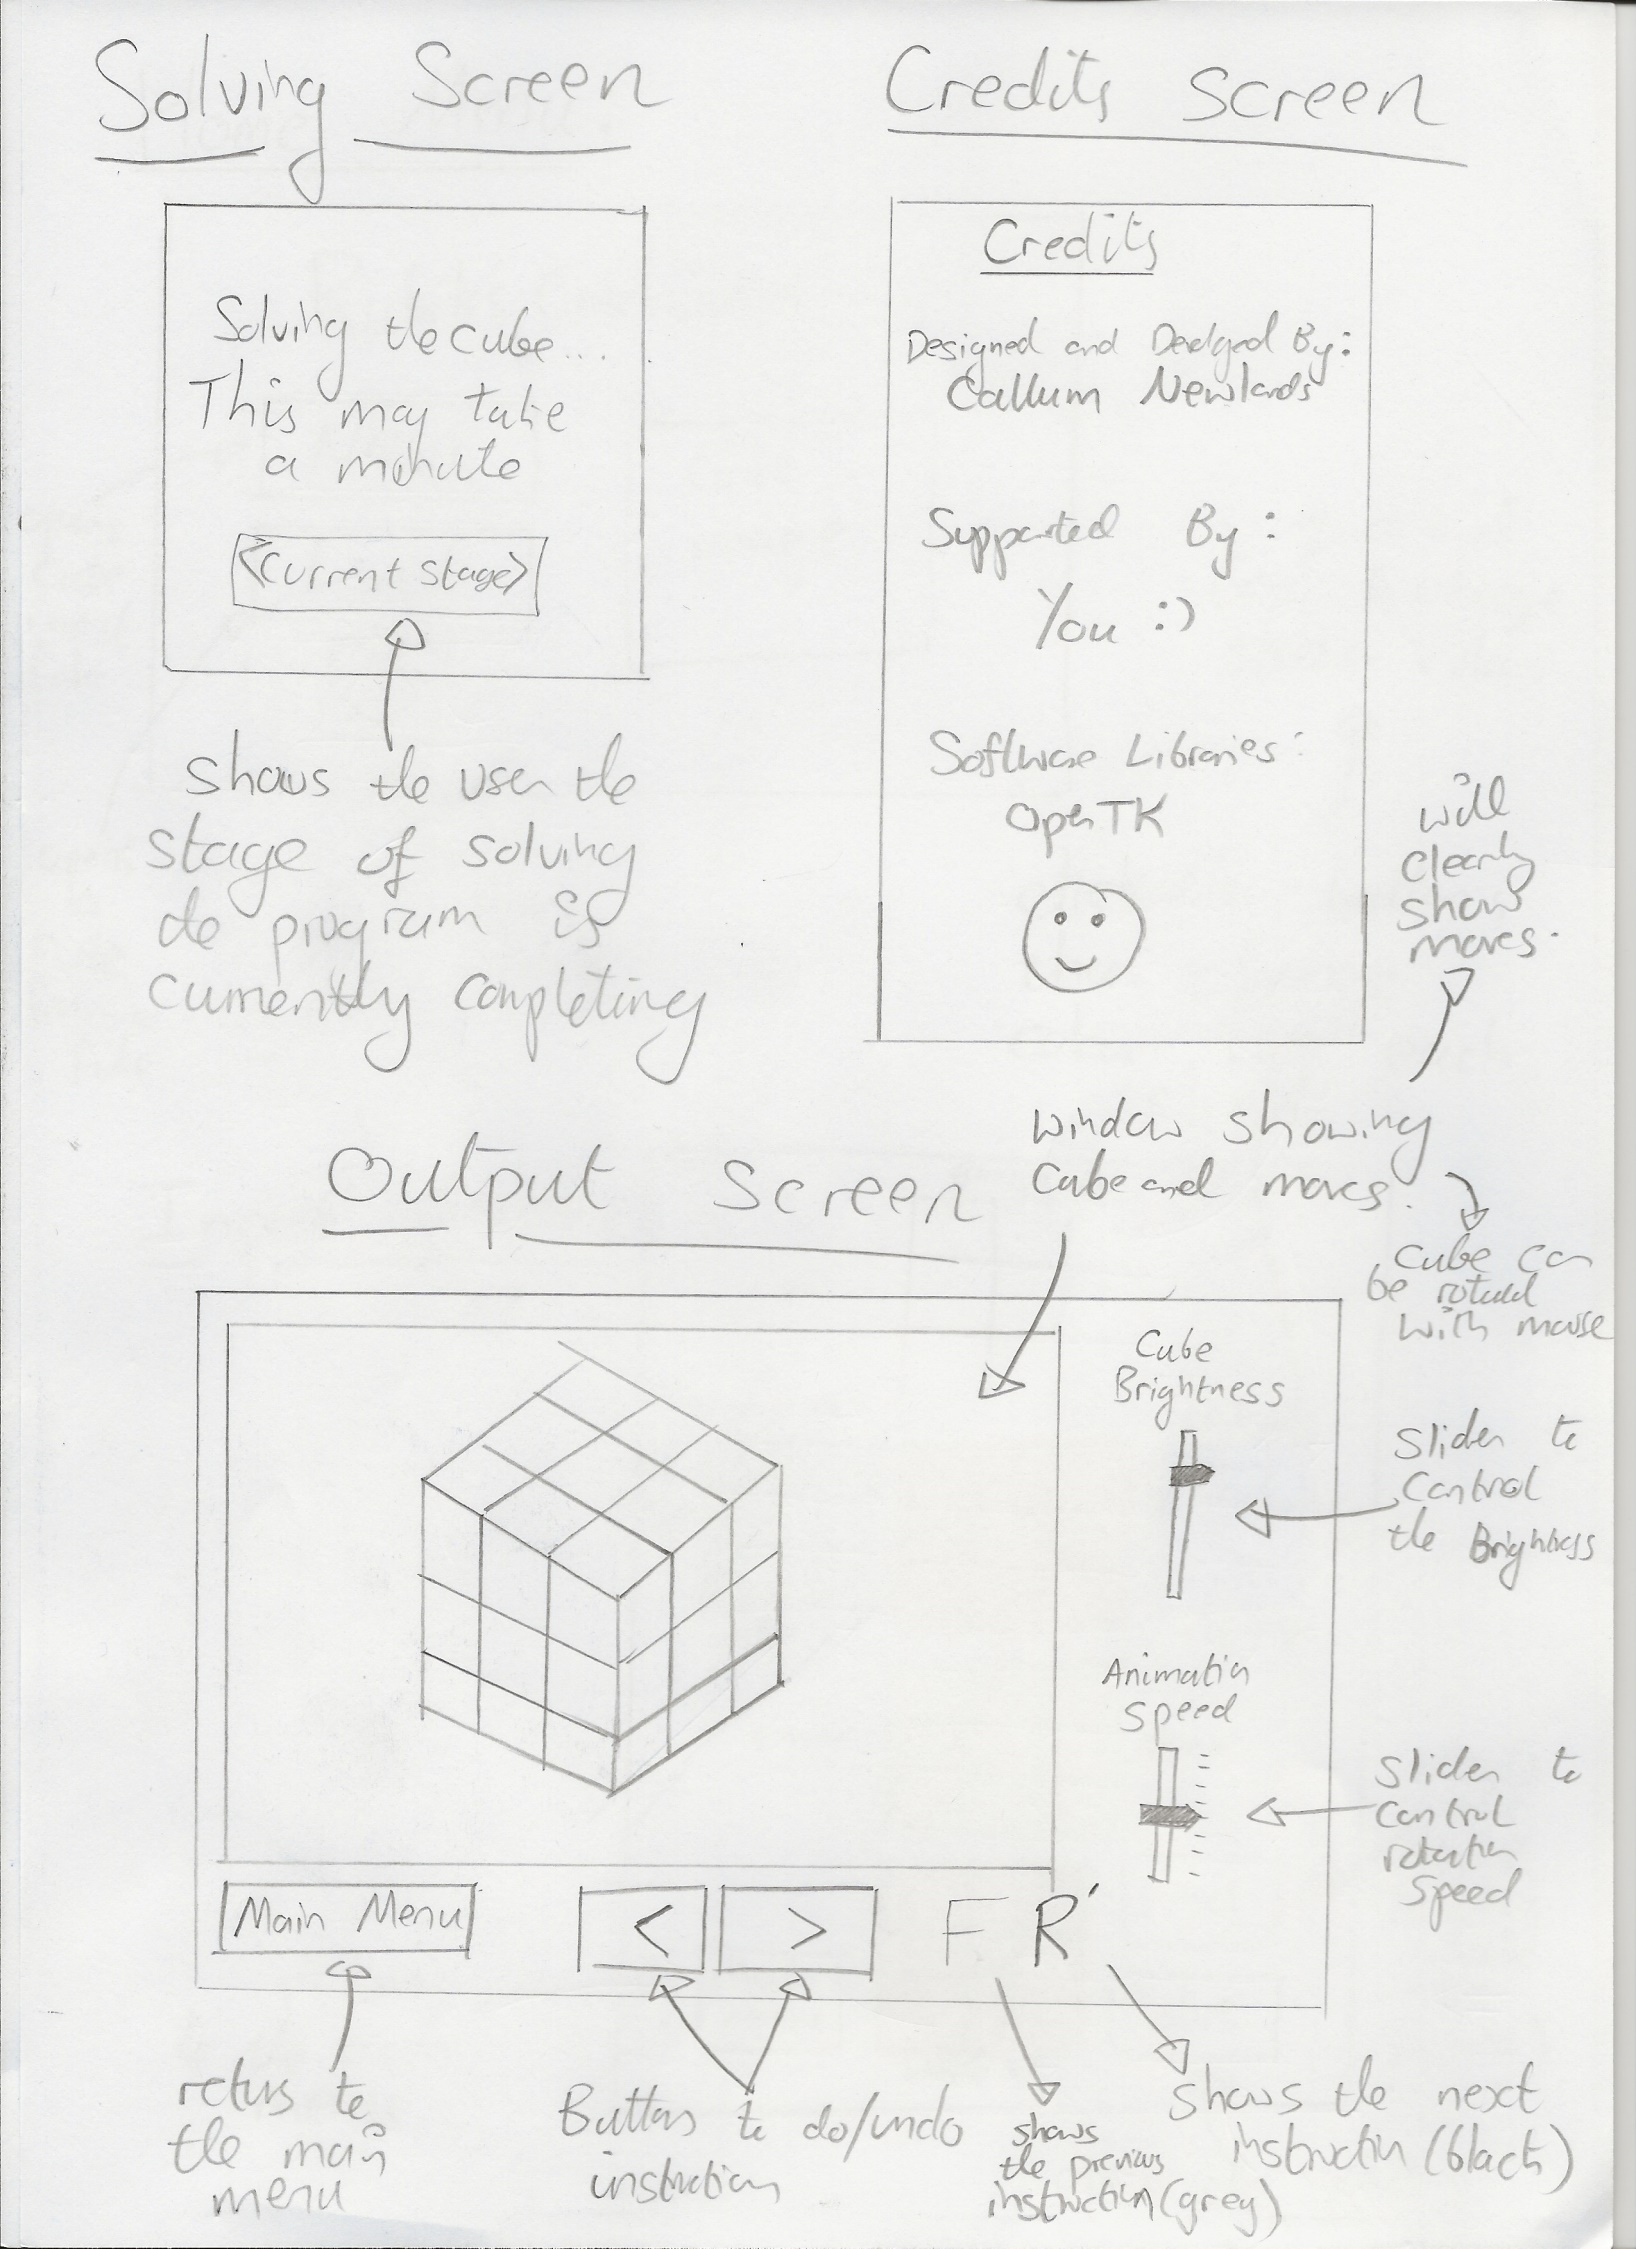 Solving Screen
Solving the cube...
This may take
a minute
<Current stage>
shows the user the
stage of solving
the program is
currently completing
Credits Screen
Credits
Designed and Developed By:
Callum Newlands
Supported By:
You :)
Software Libraries:
OpenTK
will
clearly
show
moves.
Output Screen
window showing
Cube and moves.
Cube can
be rotated
with mouse
Cube
Brightness
Slider to
Control
the Brightness
Animation
Speed
Slider to
Control
rotation
Speed
Main Menu
< > F R'
returns to
the main
menu
Buttons to do/undo
instruction
shows
the previous
instruction (grey)
Shows the next
instruction (black)